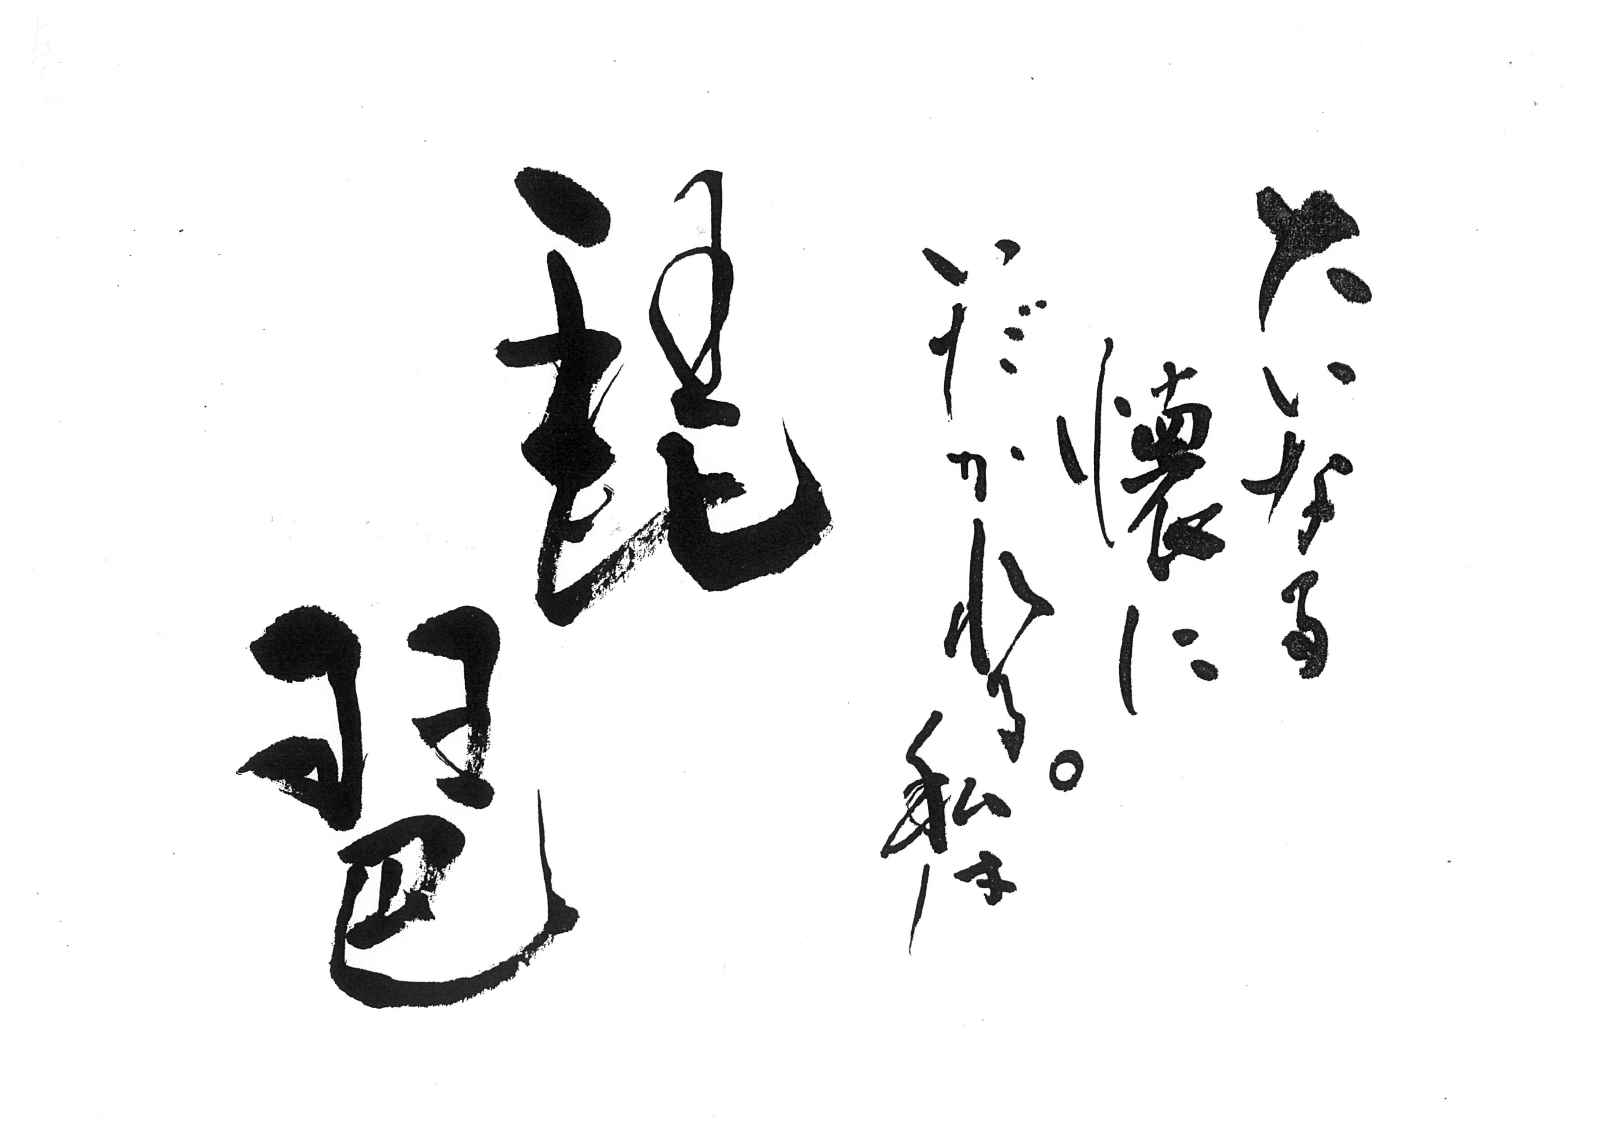 大いなる
懐に
いだかれる。
私は
琵
琶